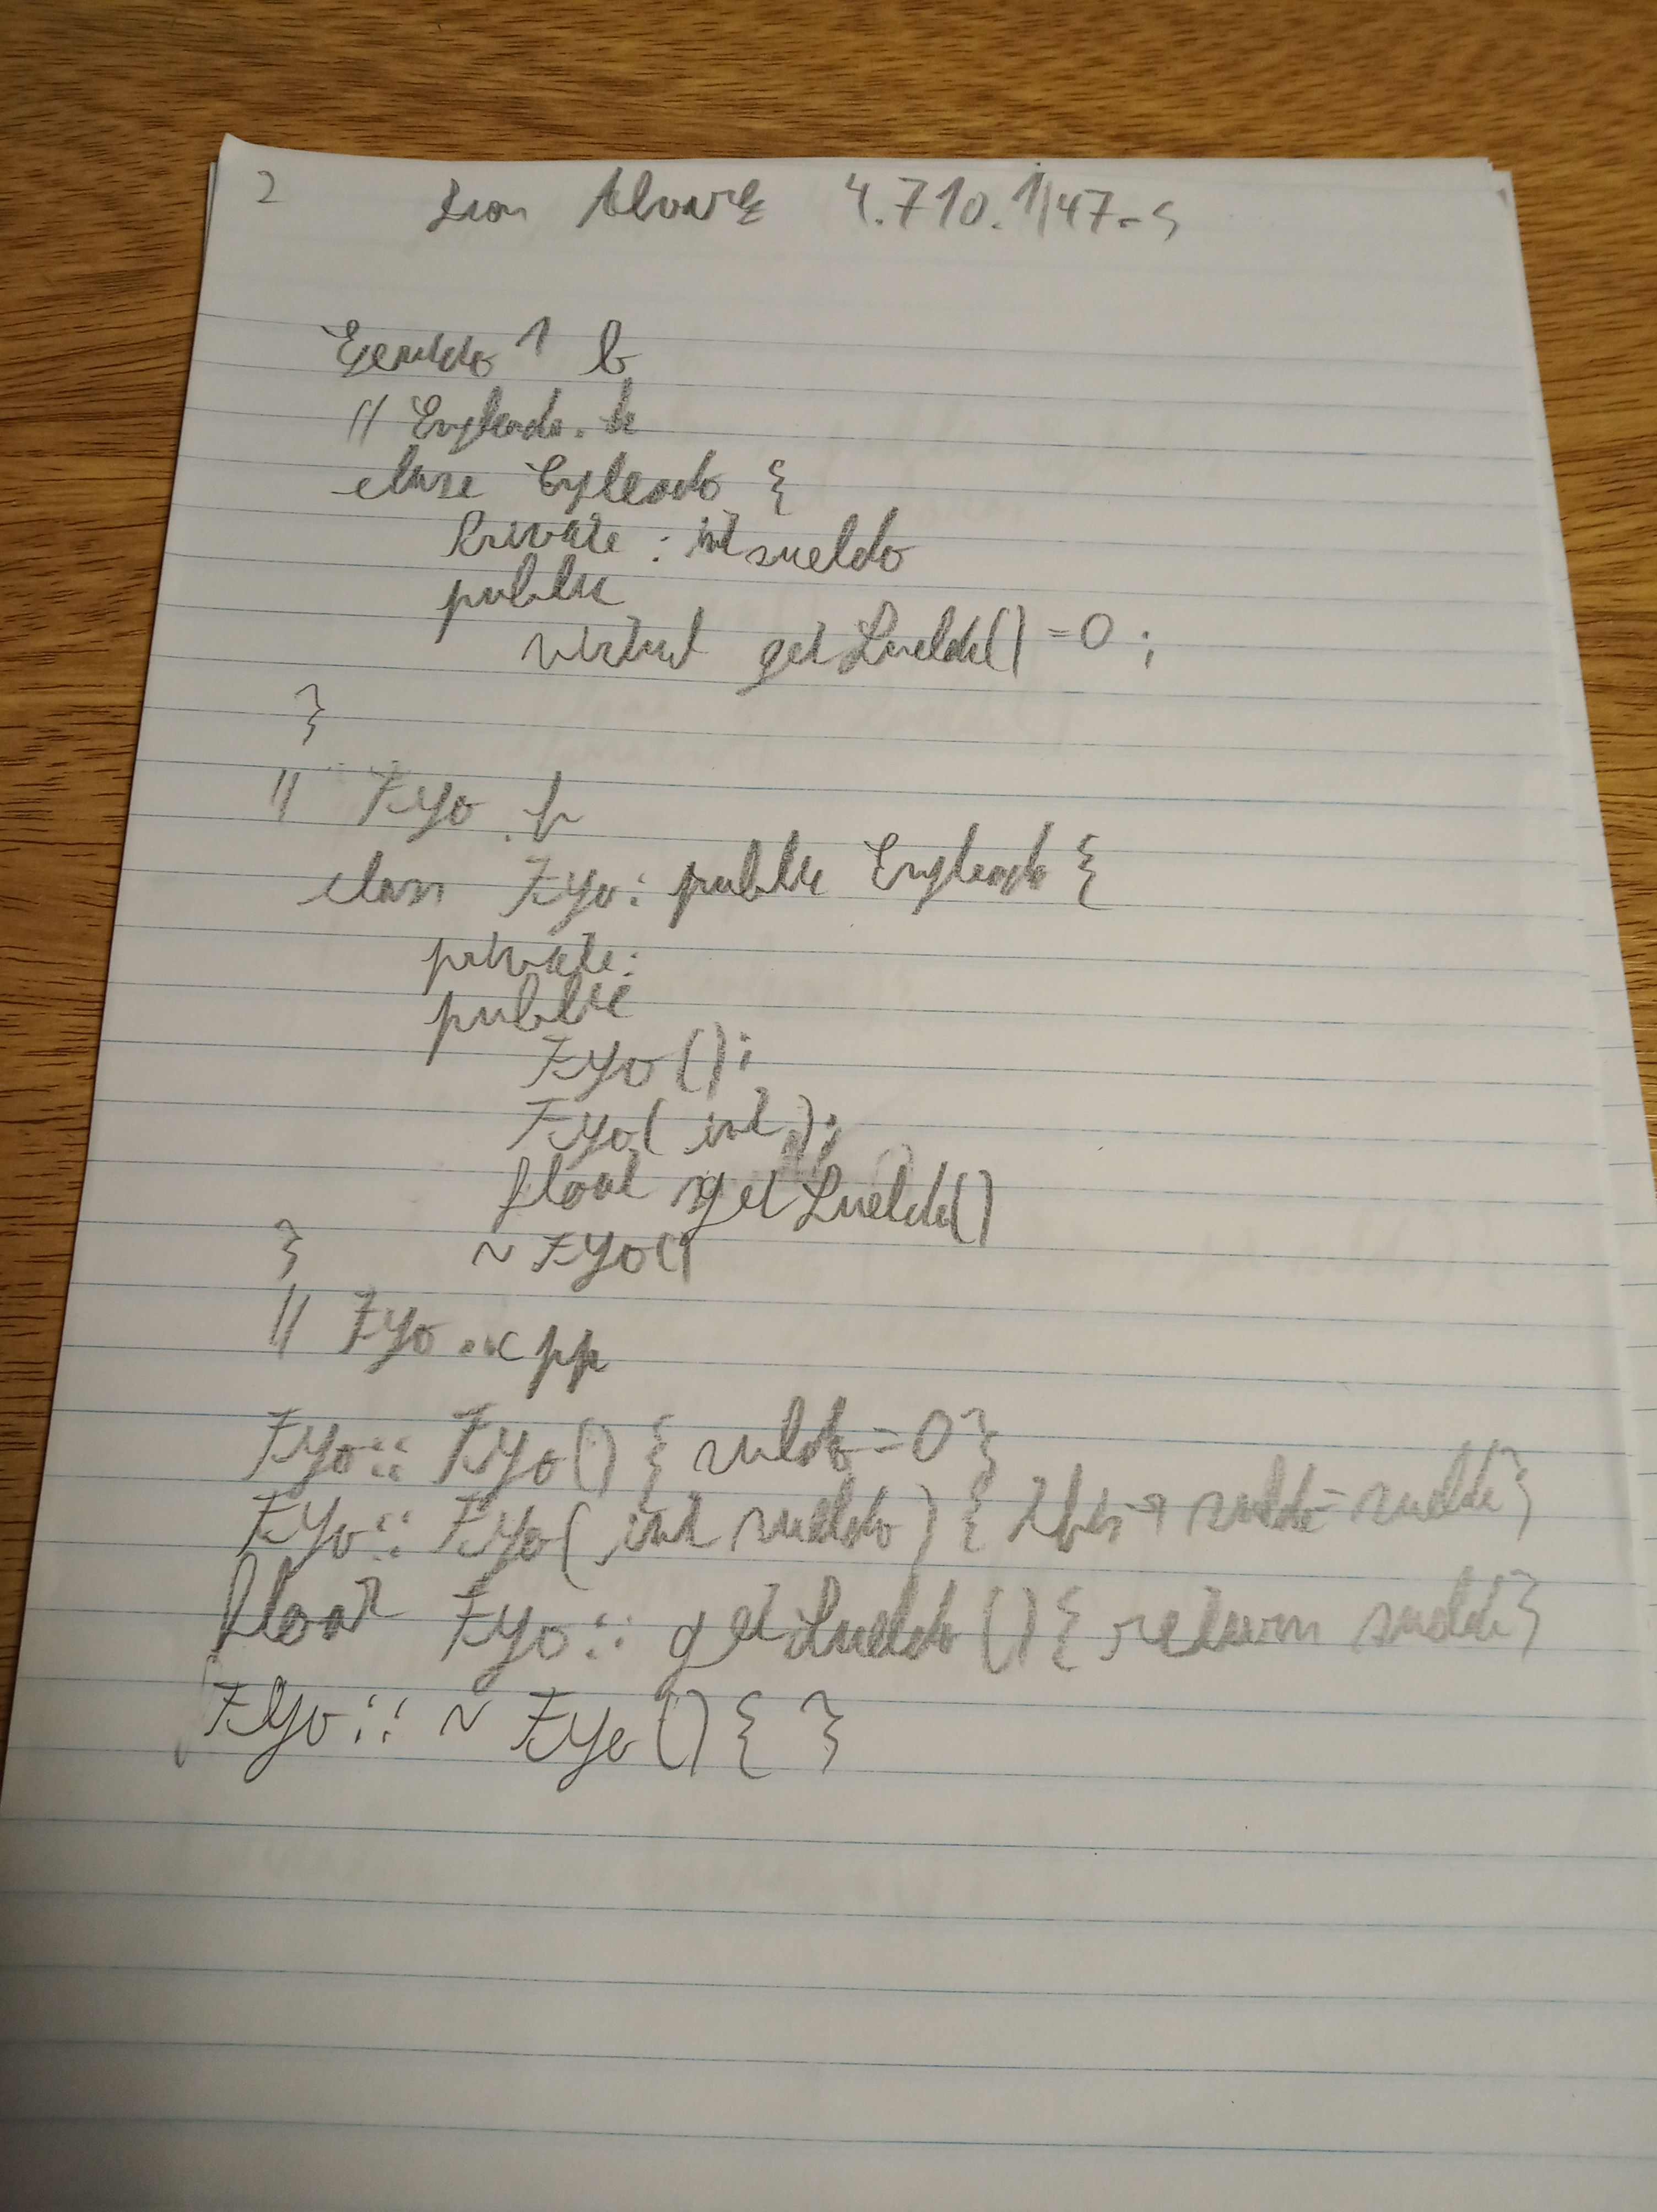 2 Alvarez 4.710.147-5
Ejercicio 1 b
// Empleado.h
class Empleado {
Private : int sueldo
public
virtual getSueldo() = 0 ;
}
// Fijo .h
class Fijo : public Empleado {
private:
public
Fijo();
Fijo( int );
float getSueldo()
} ~ Fijo()
// Fijo .cpp
Fijo :: Fijo() { sueldo = 0 }
Fijo :: Fijo( int sueldo ) { this -> sueldo = sueldo }
float Fijo :: getSueldo () { return sueldo }
Fijo :: ~ Fijo () { }